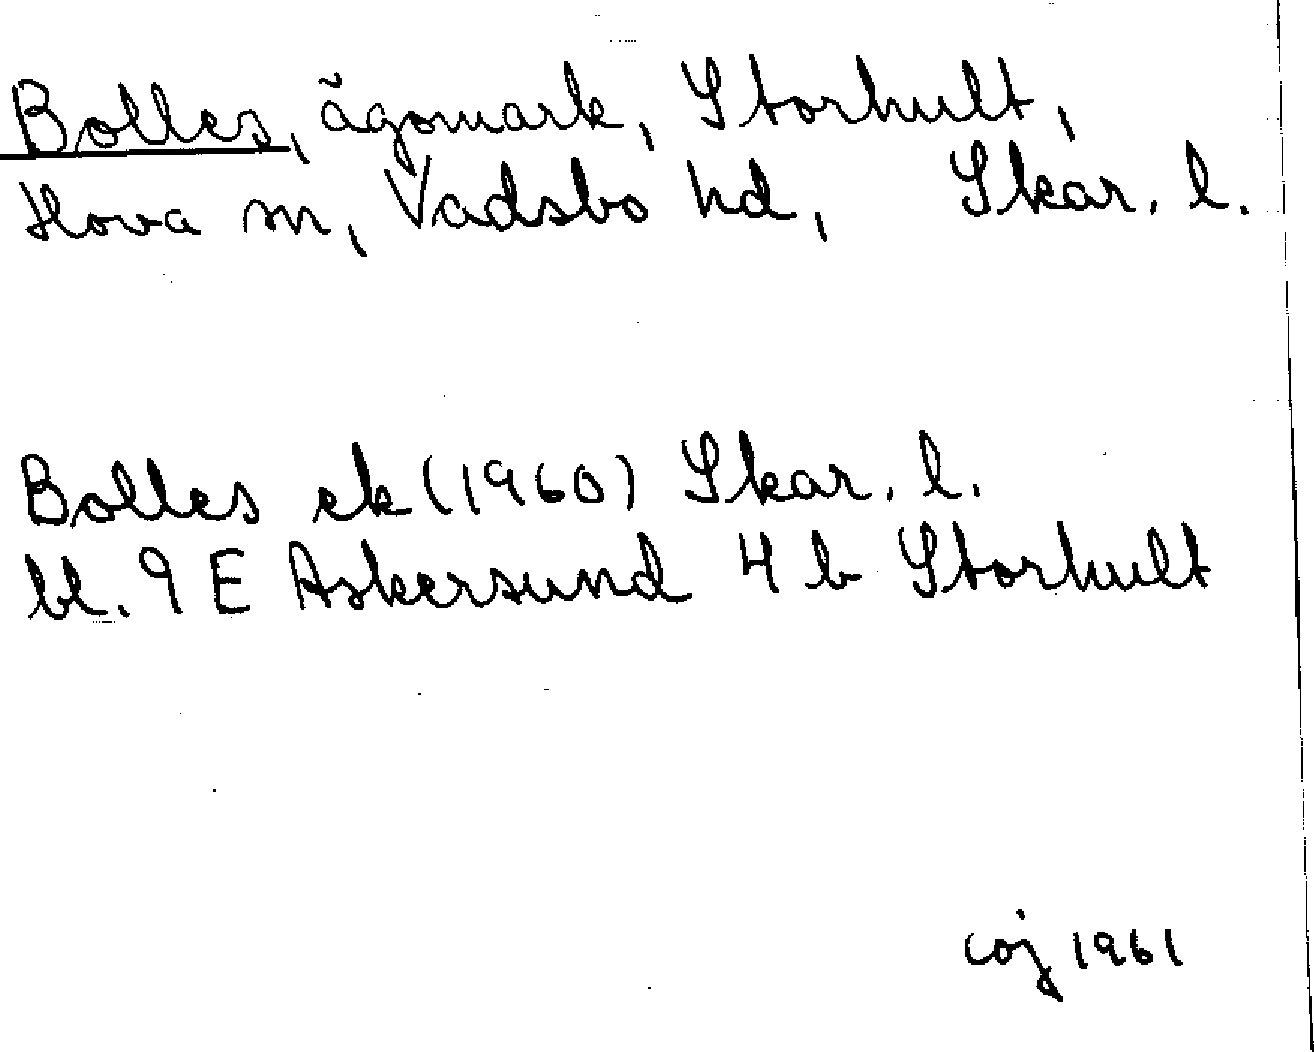 Bolles, ägomark, Storhult,
Hova sn, Vadsbo hd, Skar. l.
Bolles ek (1960) Skar. l.
bl. 9 E Askersund 4 b Storhult
coj 1961